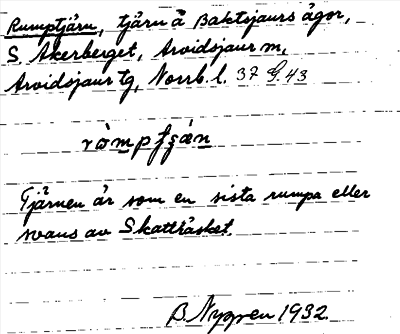 Rumptjärn, tjärn å Baktsjaurs ägor,
S. Åkerberget, Arvidsjaur m,
Arvidsjaur tg, Norrb. l. 37 G. 43
rò̀mpfʂæn
Tjärnen är som en sista rumpa eller
svans av Skatträsket.
B. Nygren 1932.